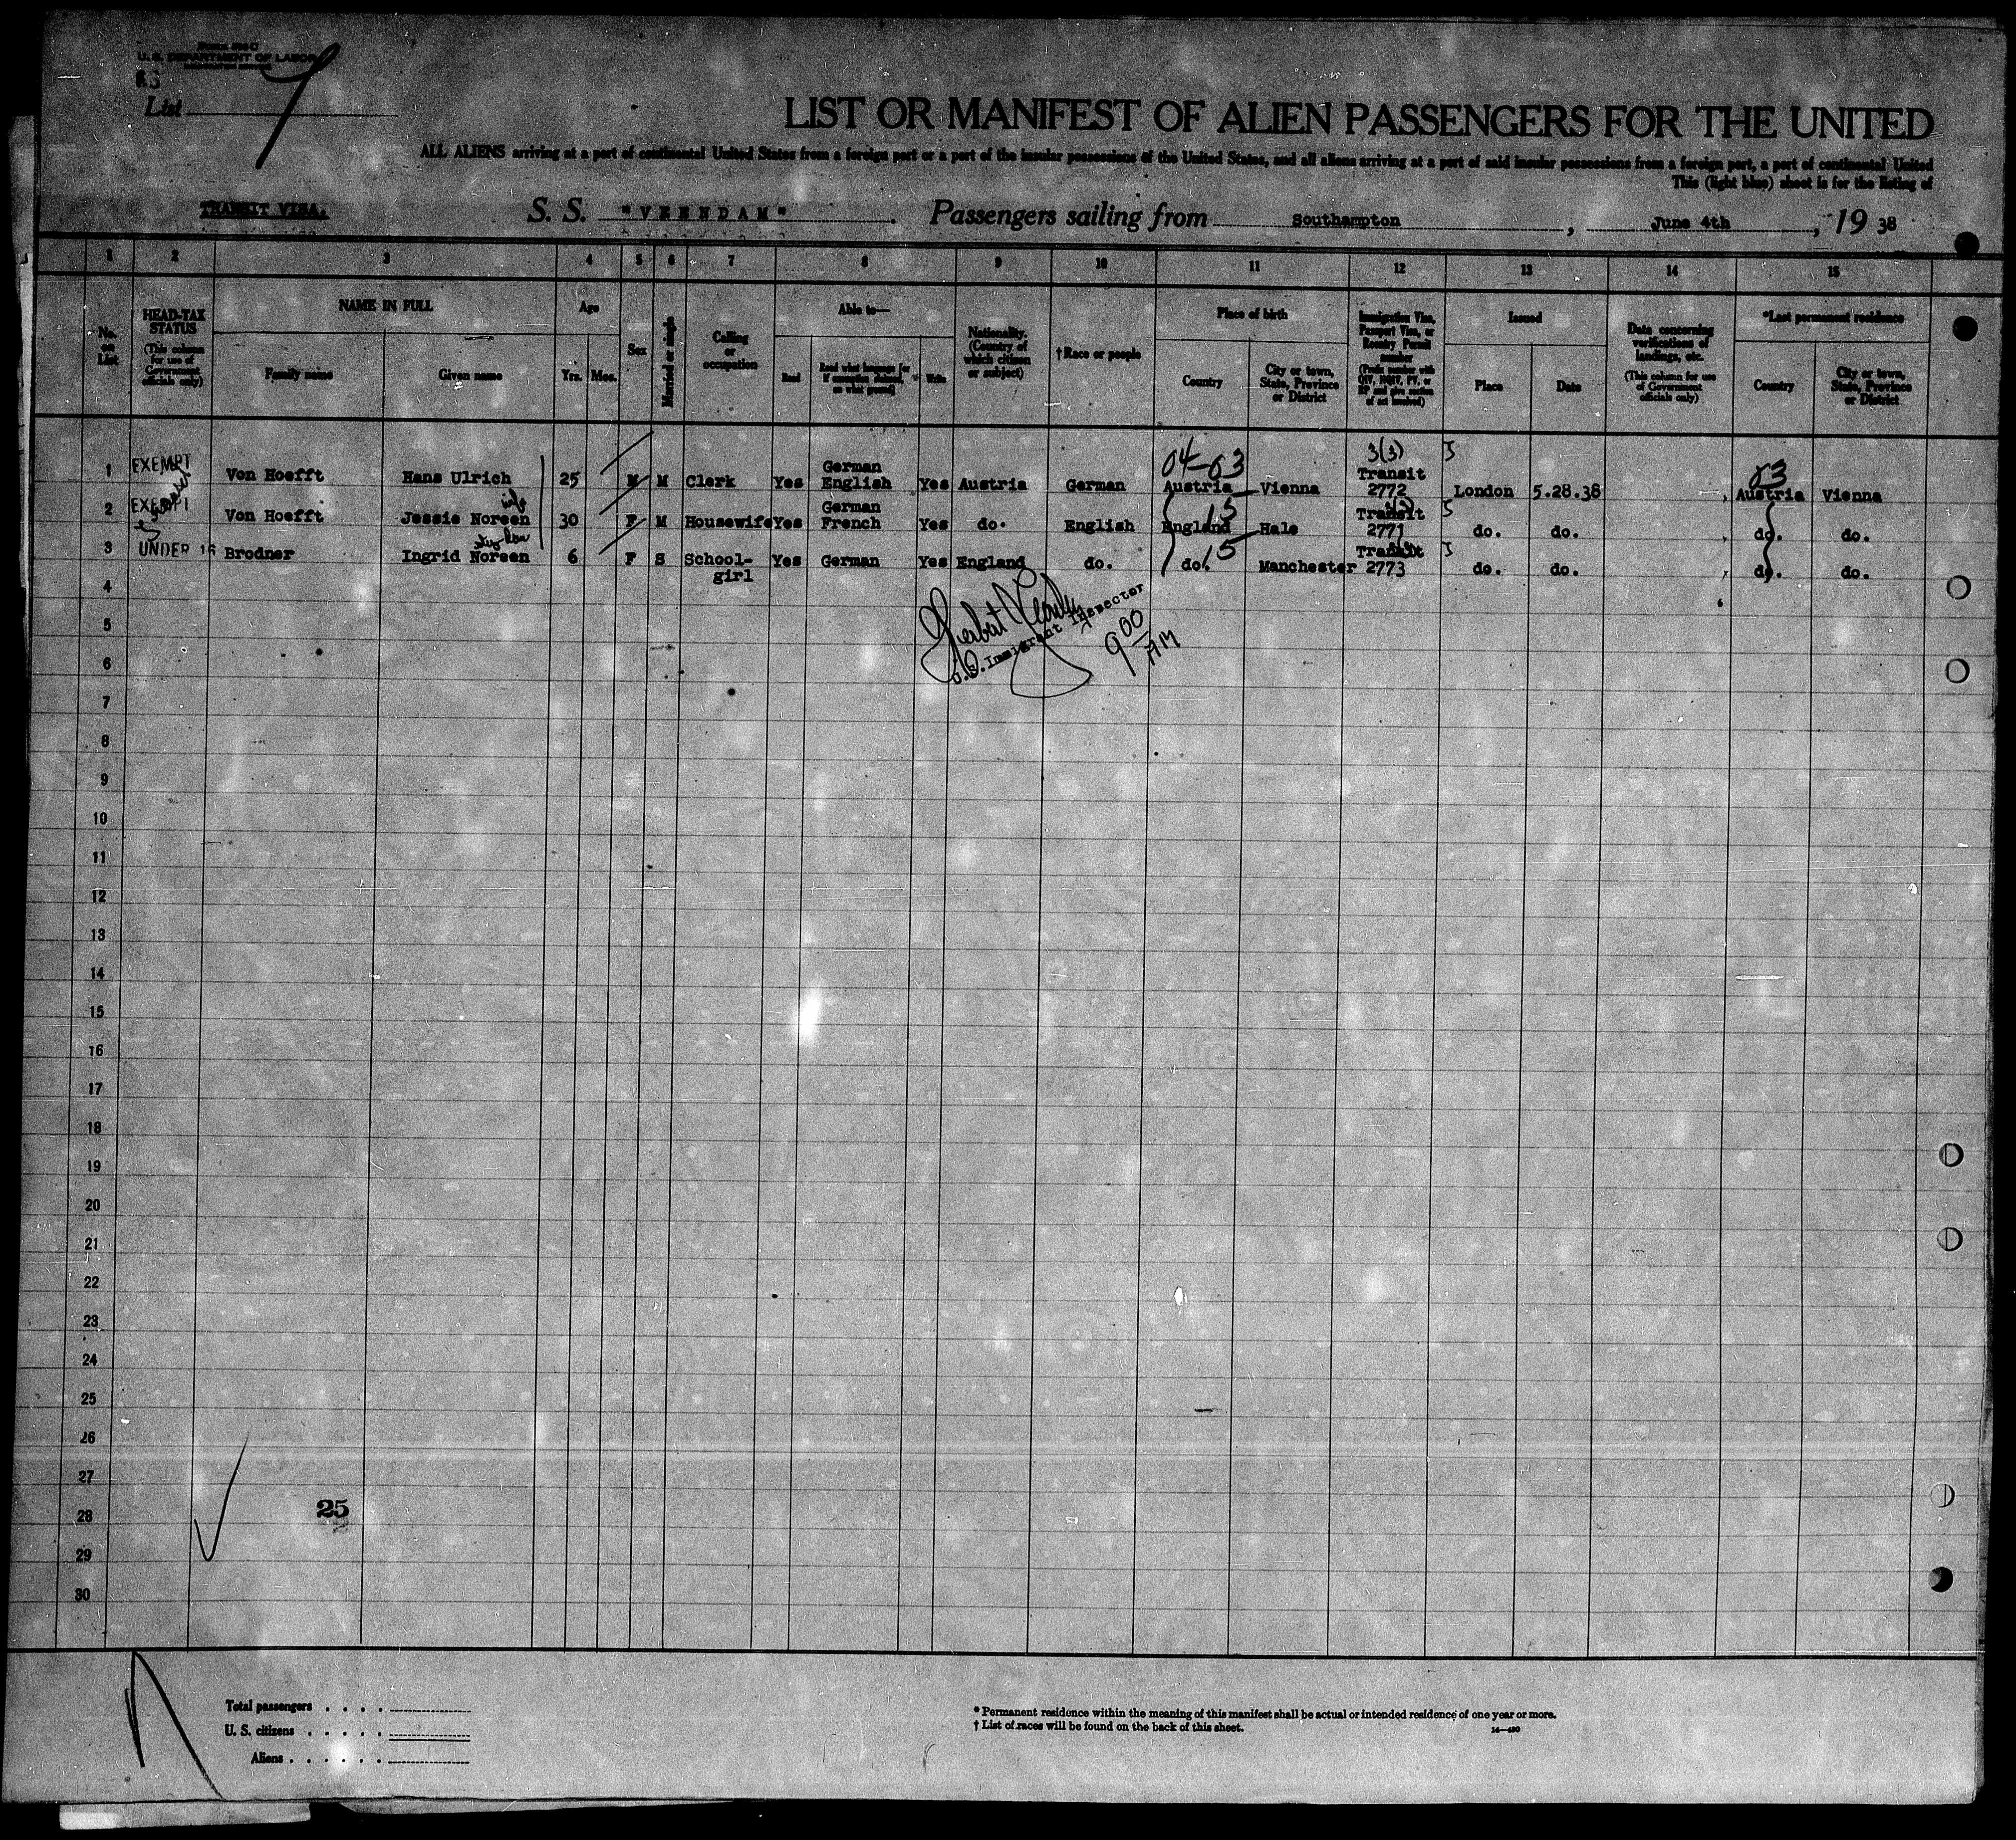 U. S. DEPARTMENT OF LABOR
List
7
LIST OR MANIFEST OF ALIEN PASSENGERS FOR THE UNITED
ALL ALIENS arriving at a port of continental United States from a foreign port or a port of the insular possessions of the United States, and all aliens arriving at a port of said insular possessions from a foreign port, a port of continental United
This (light blue) sheet is for the listing of
TRANSIT VISA.
S. S. "VEENDAM" Passengers sailing from Southampton, June 4th, 19 38
1 2 3 4 5 6 7 8 9 10 11 12 13 14 15
No. on List
HEAD-TAX STATUS (This column for use of Government officials only)
NAME IN FULL
Family name
Given name
Age
Yrs. Mos.
Sex
Married or single
Calling or occupation
Able to—
Read
Read what language [or if exemption claimed, on what ground]
Write
Nationality. (Country of which citizen or subject)
†Race or people
Place of birth
Country
City or town, State, Province or District
Immigration Visa, Passport Visa, or Reentry Permit number (Prefix number with QIV, NQIV, PV, or RP and give section of act involved)
Issued
Place
Date
Data concerning verifications of landings, etc. (This column for use of Government officials only)
*Last permanent residence
Country
City or town, State, Province or District
04-63
3(3)
83
1 EXEMPT Von Hoefft Hans Ulrich 25 M M Clerk Yes German English Yes Austria German Austria Vienna Transit 2772 London 5.28.38 Austria Vienna
wife
15
2 EXEMPT Von Hoefft Jessie Noreen 30 F M Housewife Yes German French Yes do. English England Hale Transit 2771 do. do. do. do.
15
3 UNDER 16 Brodner Ingrid Noreen 6 F S School-girl Yes German Yes England do. do. Manchester Transit 2773 do. do. do. do.
4
U.S. Immigrant Inspector
9 00 AM
5
6
7
8
9
10
11
12
13
14
15
16
17
18
19
20
21
22
23
24
25
26
27
28
25
29
30
Total passengers . . . .
U. S. citizens . . . . .
Aliens . . . . . .
* Permanent residence within the meaning of this manifest shall be actual or intended residence of one year or more.
† List of races will be found on the back of this sheet.
14—430